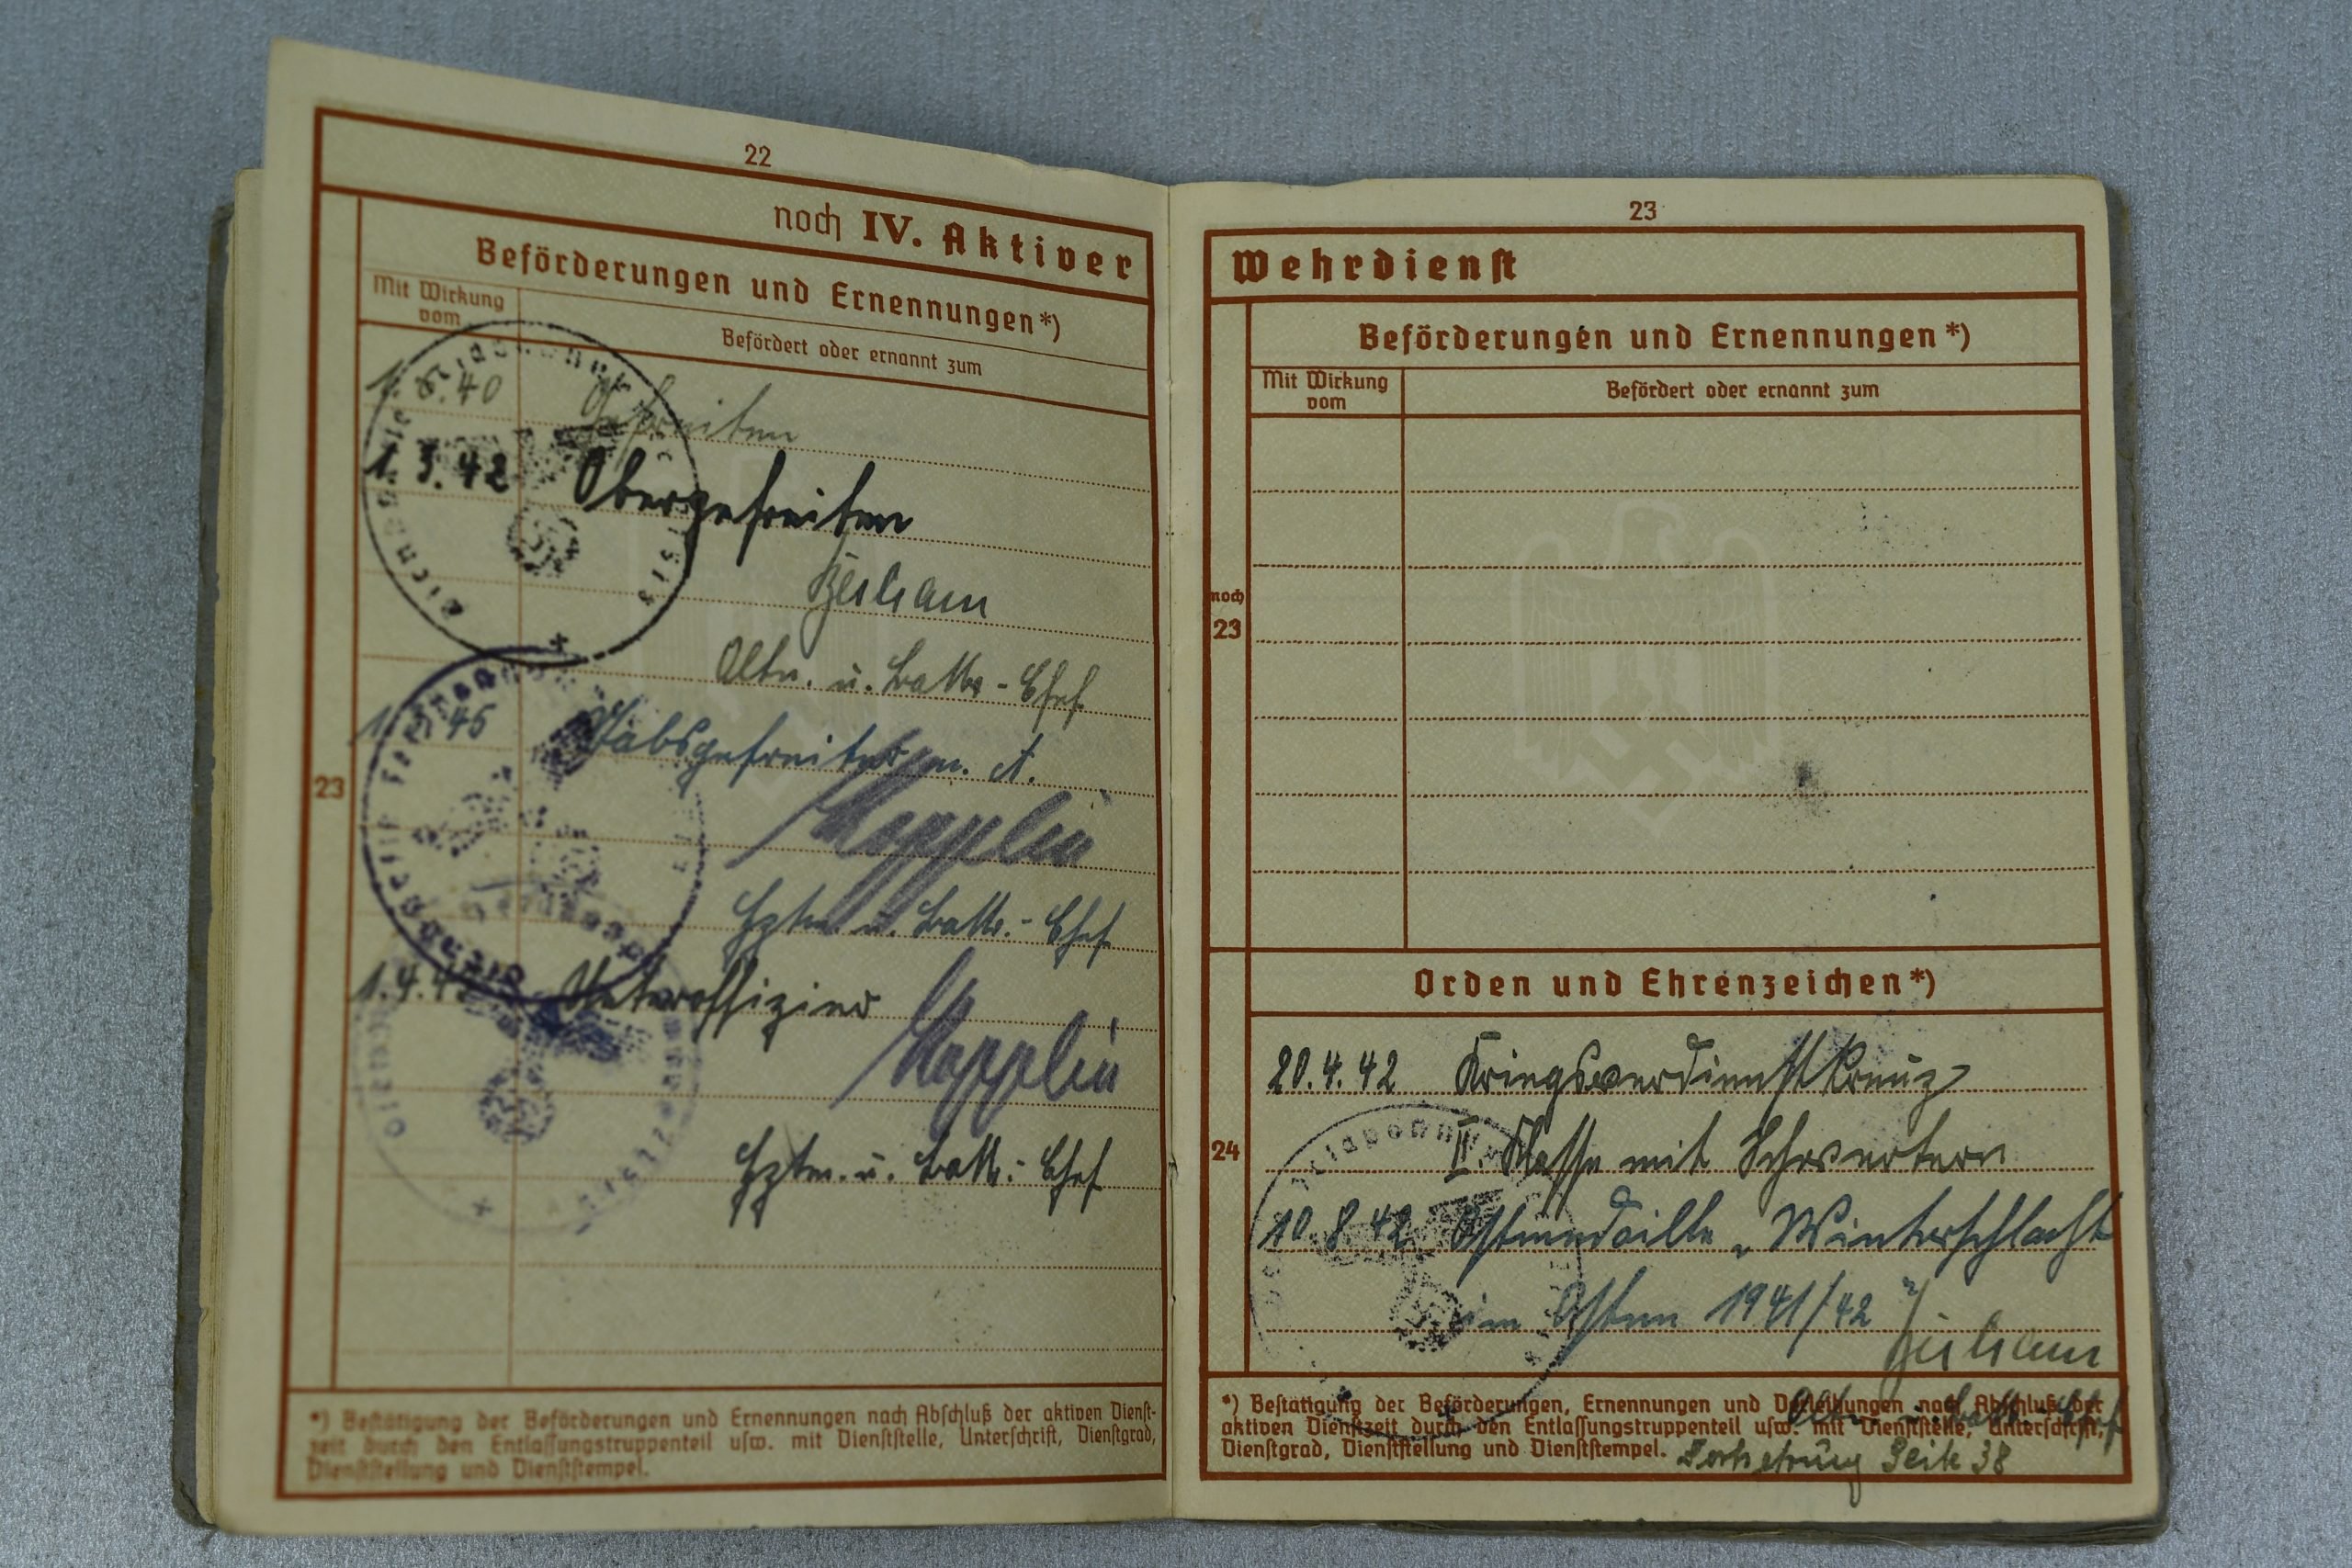 22
noch IV. Aktiver
Beförderungen und Ernennungen*)
Mit Wirkung vom
Befördert oder ernannt zum
23
1. 6. 40 Gefreiten
1. 3. 42 Obergefreiten
Oltn. u. Battr.-Chef
45 Stabsgefreiter m. A.
Kopplin
Hptm. u. Battr.-Chef
1.4. Unteroffizier
Kopplin
Hptm. u. Battr.-Chef
*) Bestätigung der Beförderungen und Ernennungen nach Abschluß der aktiven Dienst-
zeit durch den Entlassungstruppenteil usw. mit Dienststelle, Unterschrift, Dienstgrad,
Dienststellung und Dienststempel.
23
Wehrdienst
Beförderungen und Ernennungen*)
Mit Wirkung vom
Befördert oder ernannt zum
noch
23
Orden und Ehrenzeichen*)
24
20.4.42 Kriegsverdienstkreuz
II. Klasse mit Schwertern
10.8.42 Ostmedaille „Winterschlacht
im Osten 1941/42"
Oltn. u. Battr.-Chef
*) Bestätigung der Beförderungen, Ernennungen und Verleihungen nach Abschluß der
aktiven Dienstzeit durch den Entlassungstruppenteil usw. mit Dienststelle, Unterschrift,
Dienstgrad, Dienststellung und Dienststempel.
Fortsetzung Seite 38